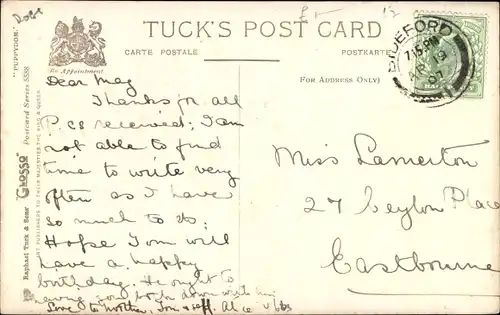 Dogs
£ –
12
"PUPPYDOM."
Raphael Tuck & Sons' "Glosso" Postcard Series 5558
ART PUBLISHERS TO THEIR MAJESTIES THE KING & QUEEN.
By Appointment
TUCK'S POST CARD
CARTE POSTALE
POSTKARTE
FOR ADDRESS ONLY)
BIDEFORD
7.15 PM
19
07
Dear May
Thanks for all
P.cs received; I am
not able to find
time to write very
often as I have
so much to do.
Hope Tom will
have a happy
birthday. He ought to
Love to Mother, Tom & self. Alice
Miss Lamerton
27 Ceylon Place
Eastbourne